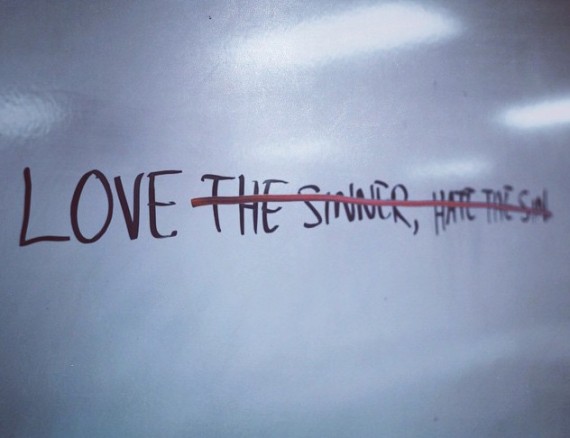 LOVE THE SINNER, HATE THE SIN